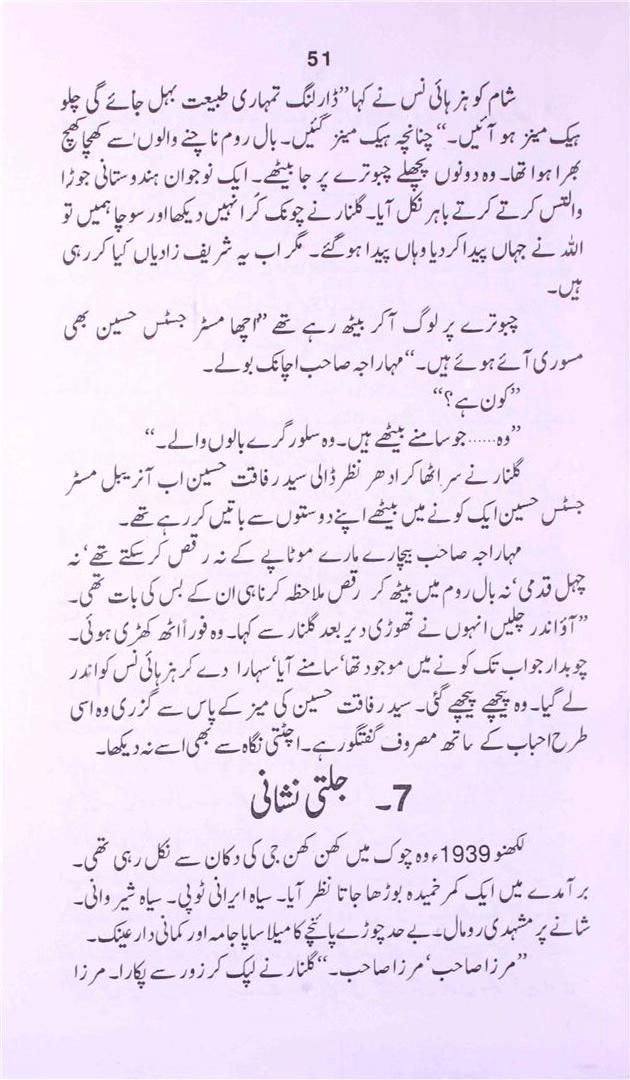 51
شام کو ہز ہائی نس نے کہا ”ڈارلنگ تمہاری طبیعت بہل جائے گی چلو
ہیک مینز ہو آئیں۔“ چنانچہ ہیک مینز گئیں۔ بال روم ناچنے والوں سے کھچا کھچ
بھرا ہوا تھا۔ وہ دونوں پچھلے چبوترے پر جا بیٹھے۔ ایک نوجوان ہندوستانی جوڑا
والٹس کرتے کرتے باہر نکل آیا۔ گلنار نے چونک کر انہیں دیکھا اور سوچا ہمیں تو
اللہ نے جہاں پیدا کر دیا وہاں پیدا ہو گئے۔ مگر اب یہ شریف زادیاں کیا کر رہی
ہیں۔
چبوترے پر لوگ آ کر بیٹھ رہے تھے ”اچھا مسٹر جسٹس حسین بھی
مسوری آئے ہوئے ہیں۔“ مہاراجہ صاحب اچانک بولے۔
”کون ہے؟“
”وہ...... جو سامنے بیٹھے ہیں۔ وہ سلور گرے بالوں والے۔“
گلنار نے سر اٹھا کر ادھر نظر ڈالی سید رفاقت حسین اب آنریبل مسٹر
جسٹس حسین ایک کونے میں بیٹھے اپنے دوستوں سے باتیں کر رہے تھے۔
مہاراجہ صاحب بیچارے مارے موٹاپے کے نہ رقص کر سکتے تھے‘ نہ
چہل قدمی‘ نہ بال روم میں بیٹھ کر رقص ملاحظہ کرنا ہی ان کے بس کی بات تھی۔
”آؤ اندر چلیں انہوں نے تھوڑی دیر بعد گلنار سے کہا۔ وہ فوراً اٹھ کھڑی ہوئی۔
چوبدار جواب تک کونے میں موجود تھا‘ سامنے آیا‘ سہارا دے کر ہز ہائی نس کو اندر
لے گیا۔ وہ پیچھے پیچھے گئی۔ سید رفاقت حسین کی میز کے پاس سے گزری وہ اسی
طرح احباب کے ساتھ مصروف گفتگو رہے۔ اچٹتی نگاہ سے بھی اسے نہ دیکھا۔
7۔ جلتی نشانی
لکھنو 1939ء وہ چوک میں کھن کھن جی کی دکان سے نکل رہی تھی۔
برآمدے میں ایک کمر خمیدہ بوڑھا جاتا نظر آیا۔ سیاہ ایرانی ٹوپی۔ سیاہ شیروانی۔
شانے پر مشہدی رومال۔ بے حد چوڑے پائنچے کا میلا سا پاجامہ اور کمانی دار عینک۔
”مرزا صاحب‘ مرزا صاحب۔“ گلنار نے لپک کر زور سے پکارا۔ مرزا